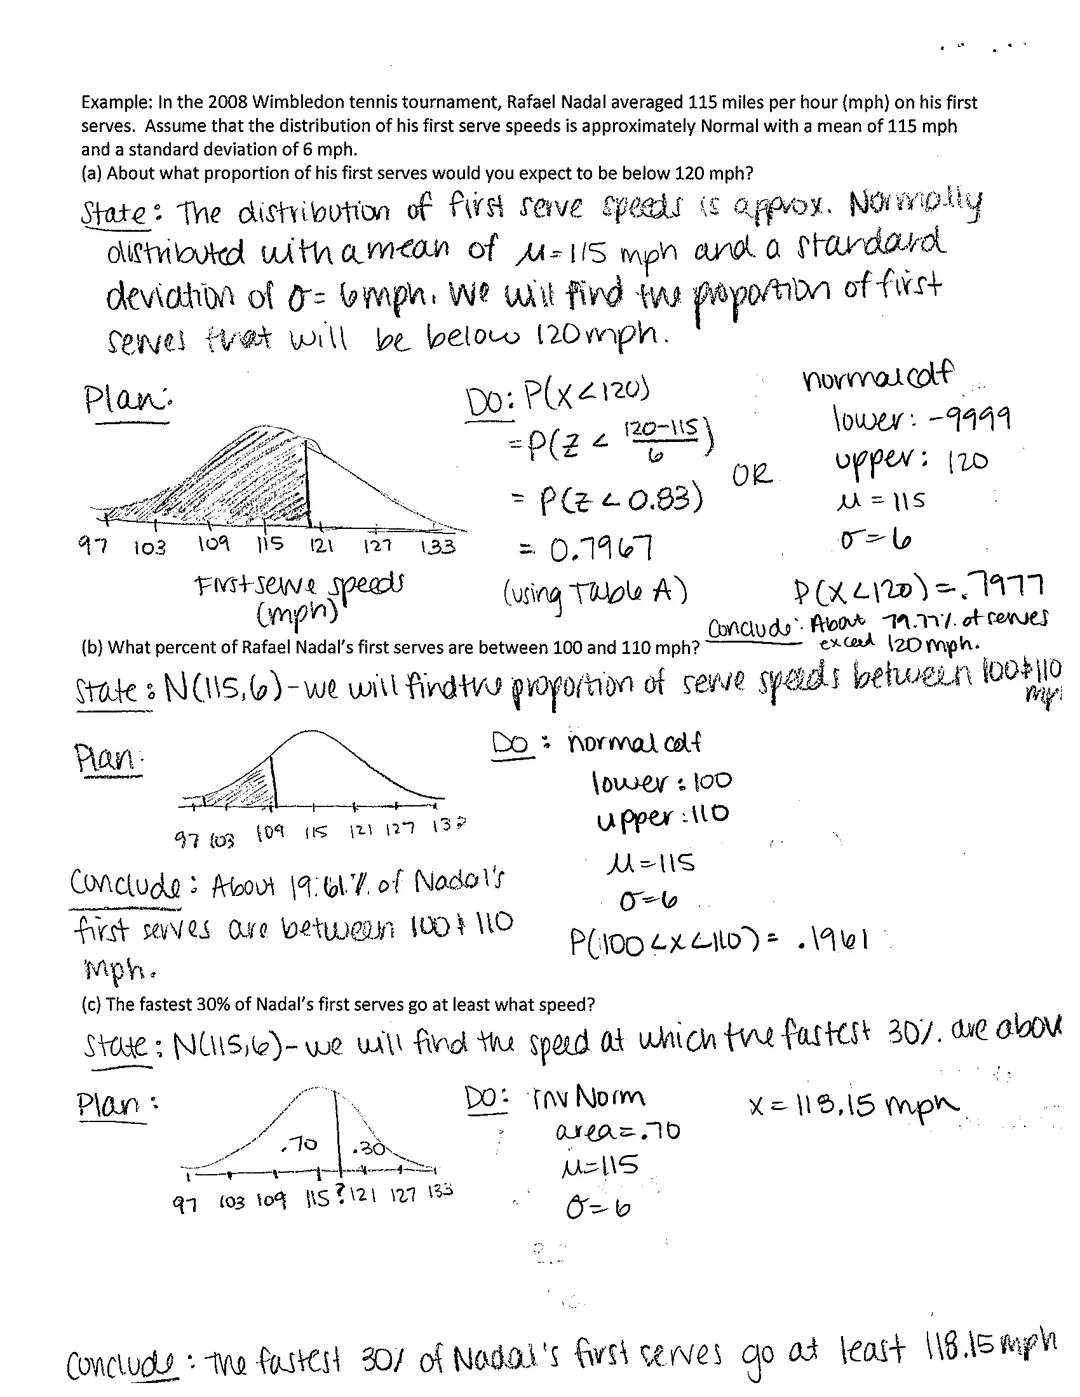 Example: In the 2008 Wimbledon tennis tournament, Rafael Nadal averaged 115 miles per hour (mph) on his first
serves. Assume that the distribution of his first serve speeds is approximately Normal with a mean of 115 mph
and a standard deviation of 6 mph.
(a) About what proportion of his first serves would you expect to be below 120 mph?
State: The distribution of first serve speeds is approx. Normally
distributed with a mean of μ=115 mph and a standard
deviation of σ=6mph. We will find the proportion of first
serves that will be below 120mph.
Plan:
97 103 109 115 121 127 133
First serve speeds
(mph)
Do: P(X<120)
=P(Z < (120-115)/6)
= P(Z < 0.83)
= 0.7967
(using Table A)
OR
normalcdf
lower: -9999
upper: 120
μ=115
σ=6
P(X<120)=.7977
Conclude: About 79.77% of serves
exceed 120mph.
(b) What percent of Rafael Nadal's first serves are between 100 and 110 mph?
State: N(115,6)-we will find the proportion of serve speeds between 100+110
mp
Plan:
97 103 109 115 121 127 133
Do: normalcdf
lower: 100
upper: 110
μ=115
σ=6
P(100<X<110)= .1961
Conclude: About 19.61% of Nadal's
first serves are between 100+110
mph.
(c) The fastest 30% of Nadal's first serves go at least what speed?
State: N(115,6)-we will find the speed at which the fastest 30% are abov
Plan:
.70 .30
97 103 109 115 ? 121 127 133
Do: Inv Norm
area=.70
μ=115
σ=6
x=118.15 mph
Conclude: The fastest 30% of Nadal's first serves go at least 118.15 mph